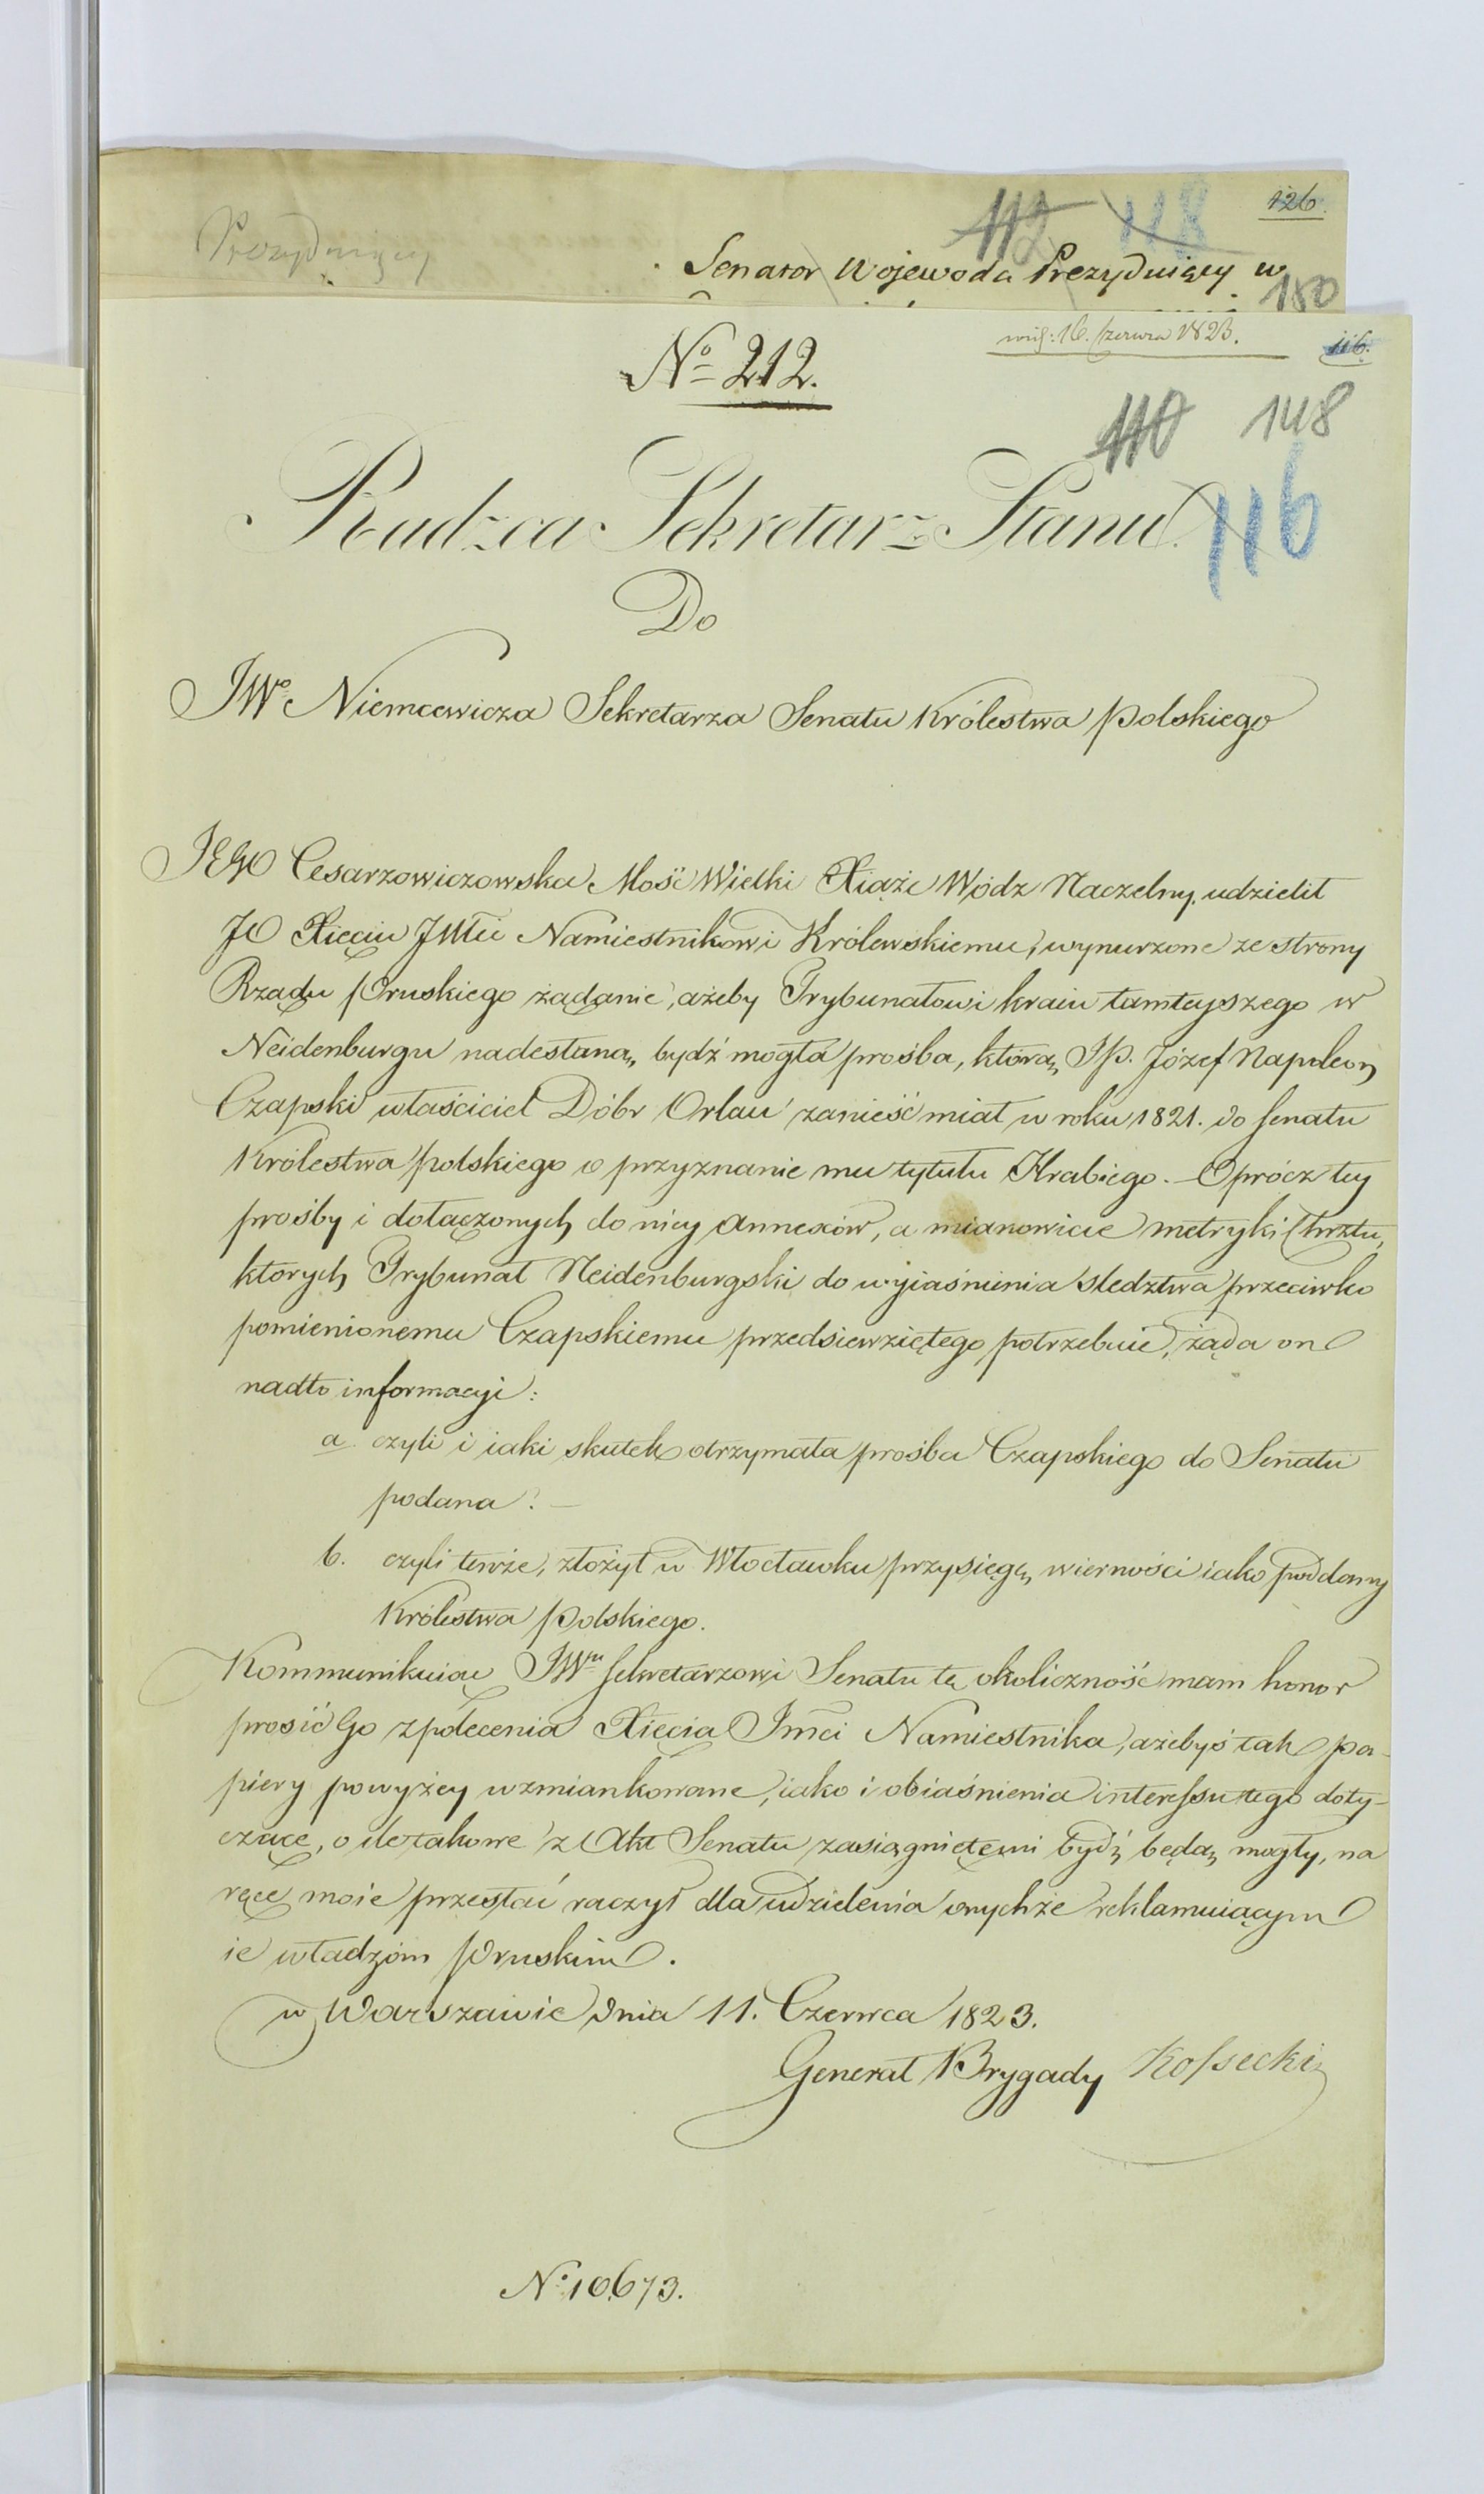 Prezydujący
112 118 126.
Senator Wojewoda Prezydujący w
180
No 212.
116.
110 148
Radzca Sekretarz Stanu.
116
Do
JWo Niemcewicza Sekretarza Senatu Królestwa Polskiego
JEGO Cesarzowiczowska Mość Wielki Xiąże Wódz Naczelny, udzielił
JO Xięciu JMci Namiestnikowi Królewskiemu, wynurzone ze strony
Rządu Pruskiego żądanie, ażeby Trybunałowi kraiu tamteyszego w
Neidenburgu nadesłaną bydź mogła prośba, którą JP. Józef Napoleon
Czapski właściciel Dóbr Orlau zanieść miał w roku 1821. do Senatu
Królestwa Polskiego o przyznanie mu tytułu Hrabiego. – Oprócz tey
prośby i dołączonych do niey Annexów, a mianowicie metryki Chrztu,
których Trybunał Neidenburgski do wyiaśnienia śledztwa przeciwko
pomienionemu Czapskiemu przedsiewziętego potrzebuie, żąda on
nadto informacyi:
a. czyli i iaki skutek otrzymała prośba Czapskiego do Senatu
podana? –
b. czyli tenże, złożył w Włocławku przysięgę wierności iako poddany
Królestwa Polskiego.
Kommunikuiąc JWmu Sekretarzowi Senatu tę okoliczność mam honor
prosić Go z polecenia Xięcia Jmci Namiestnika, ażebyś tak pa-
piery powyżey wzmiankowane, iako i obiaśnienia interessu tego doty-
czące, o ile takowe z Akt Senatu zasiągniętemi bydź będą mogły, na
ręce moie przesłać raczył dla udzielenia onychże reklamuiącym
ie władzom Pruskim.
w Warszawie dnia 11. Czerwca 1823.
Generał Brygady Kossecki
No 10673.